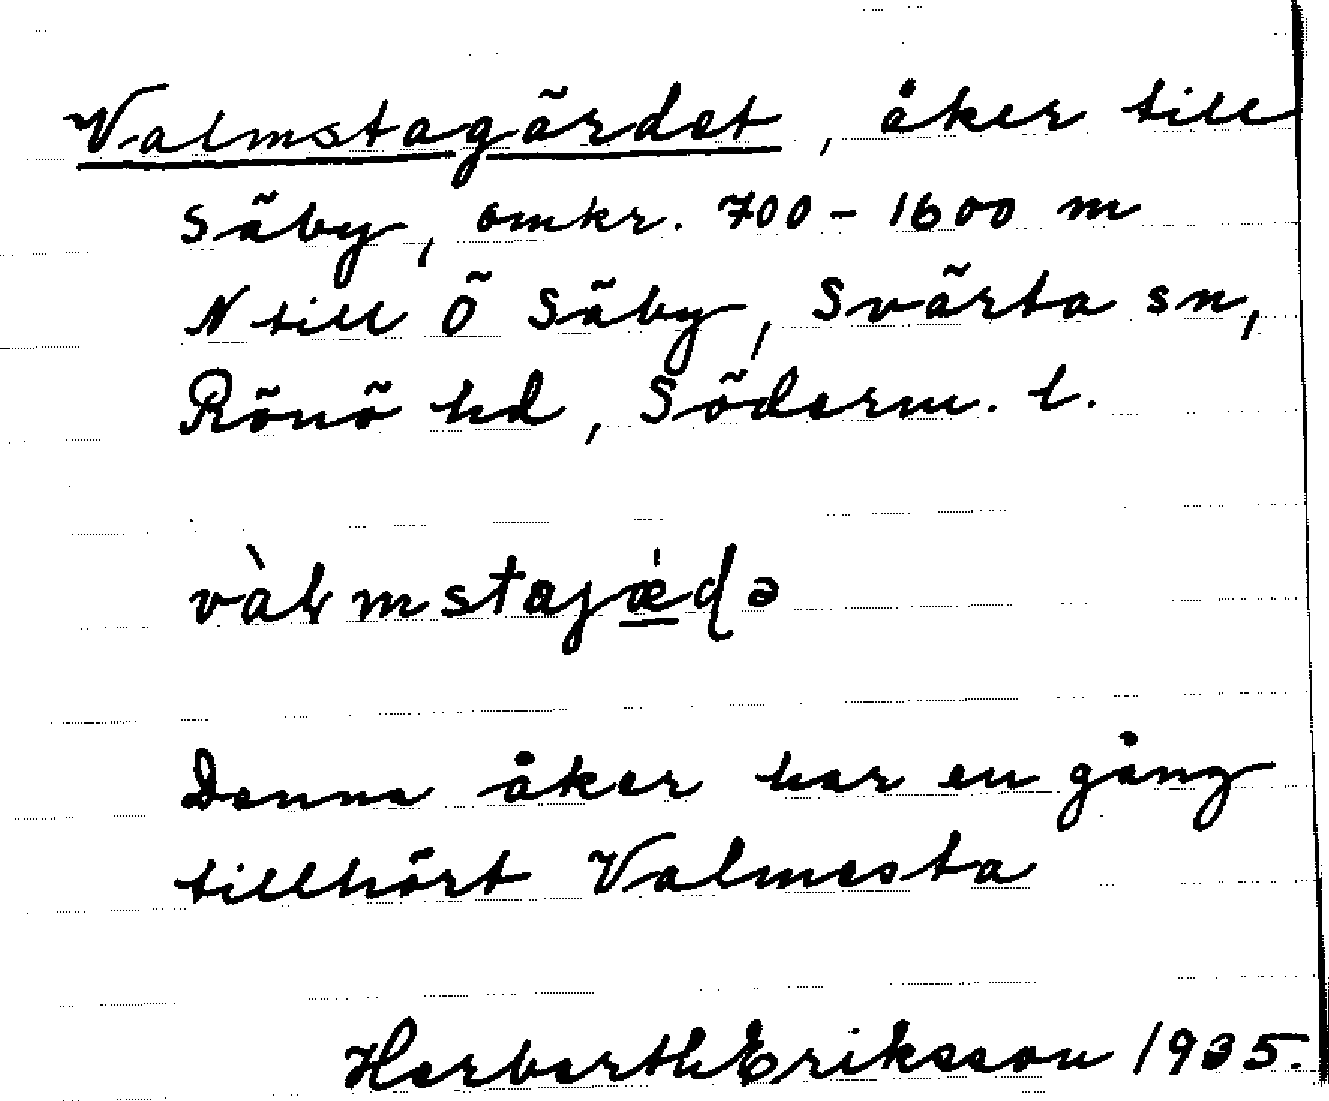 Valmstagärdet, åker till
Säby, omkr. 700-1600 m
N till Ö Säby, Svärta sn,
Rönö hd, Söderm. l.
vàłmstajǽ̲ɖə
Denna åker har en gång
tillhört Valmesta
Herberth Eriksson 1935.